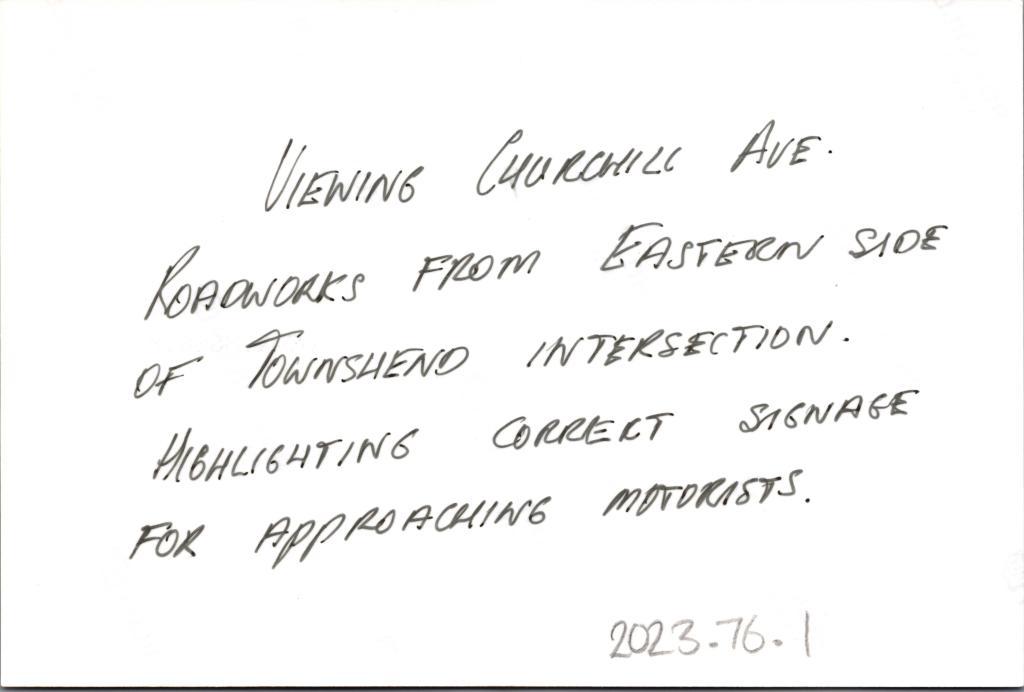 VIEWING CHURCHILL AVE.
ROADWORKS FROM EASTERN SIDE
OF TOWNSHEND INTERSECTION.
HIGHLIGHTING CORRECT SIGNAGE
FOR APPROACHING MOTORISTS.
2023.76.1